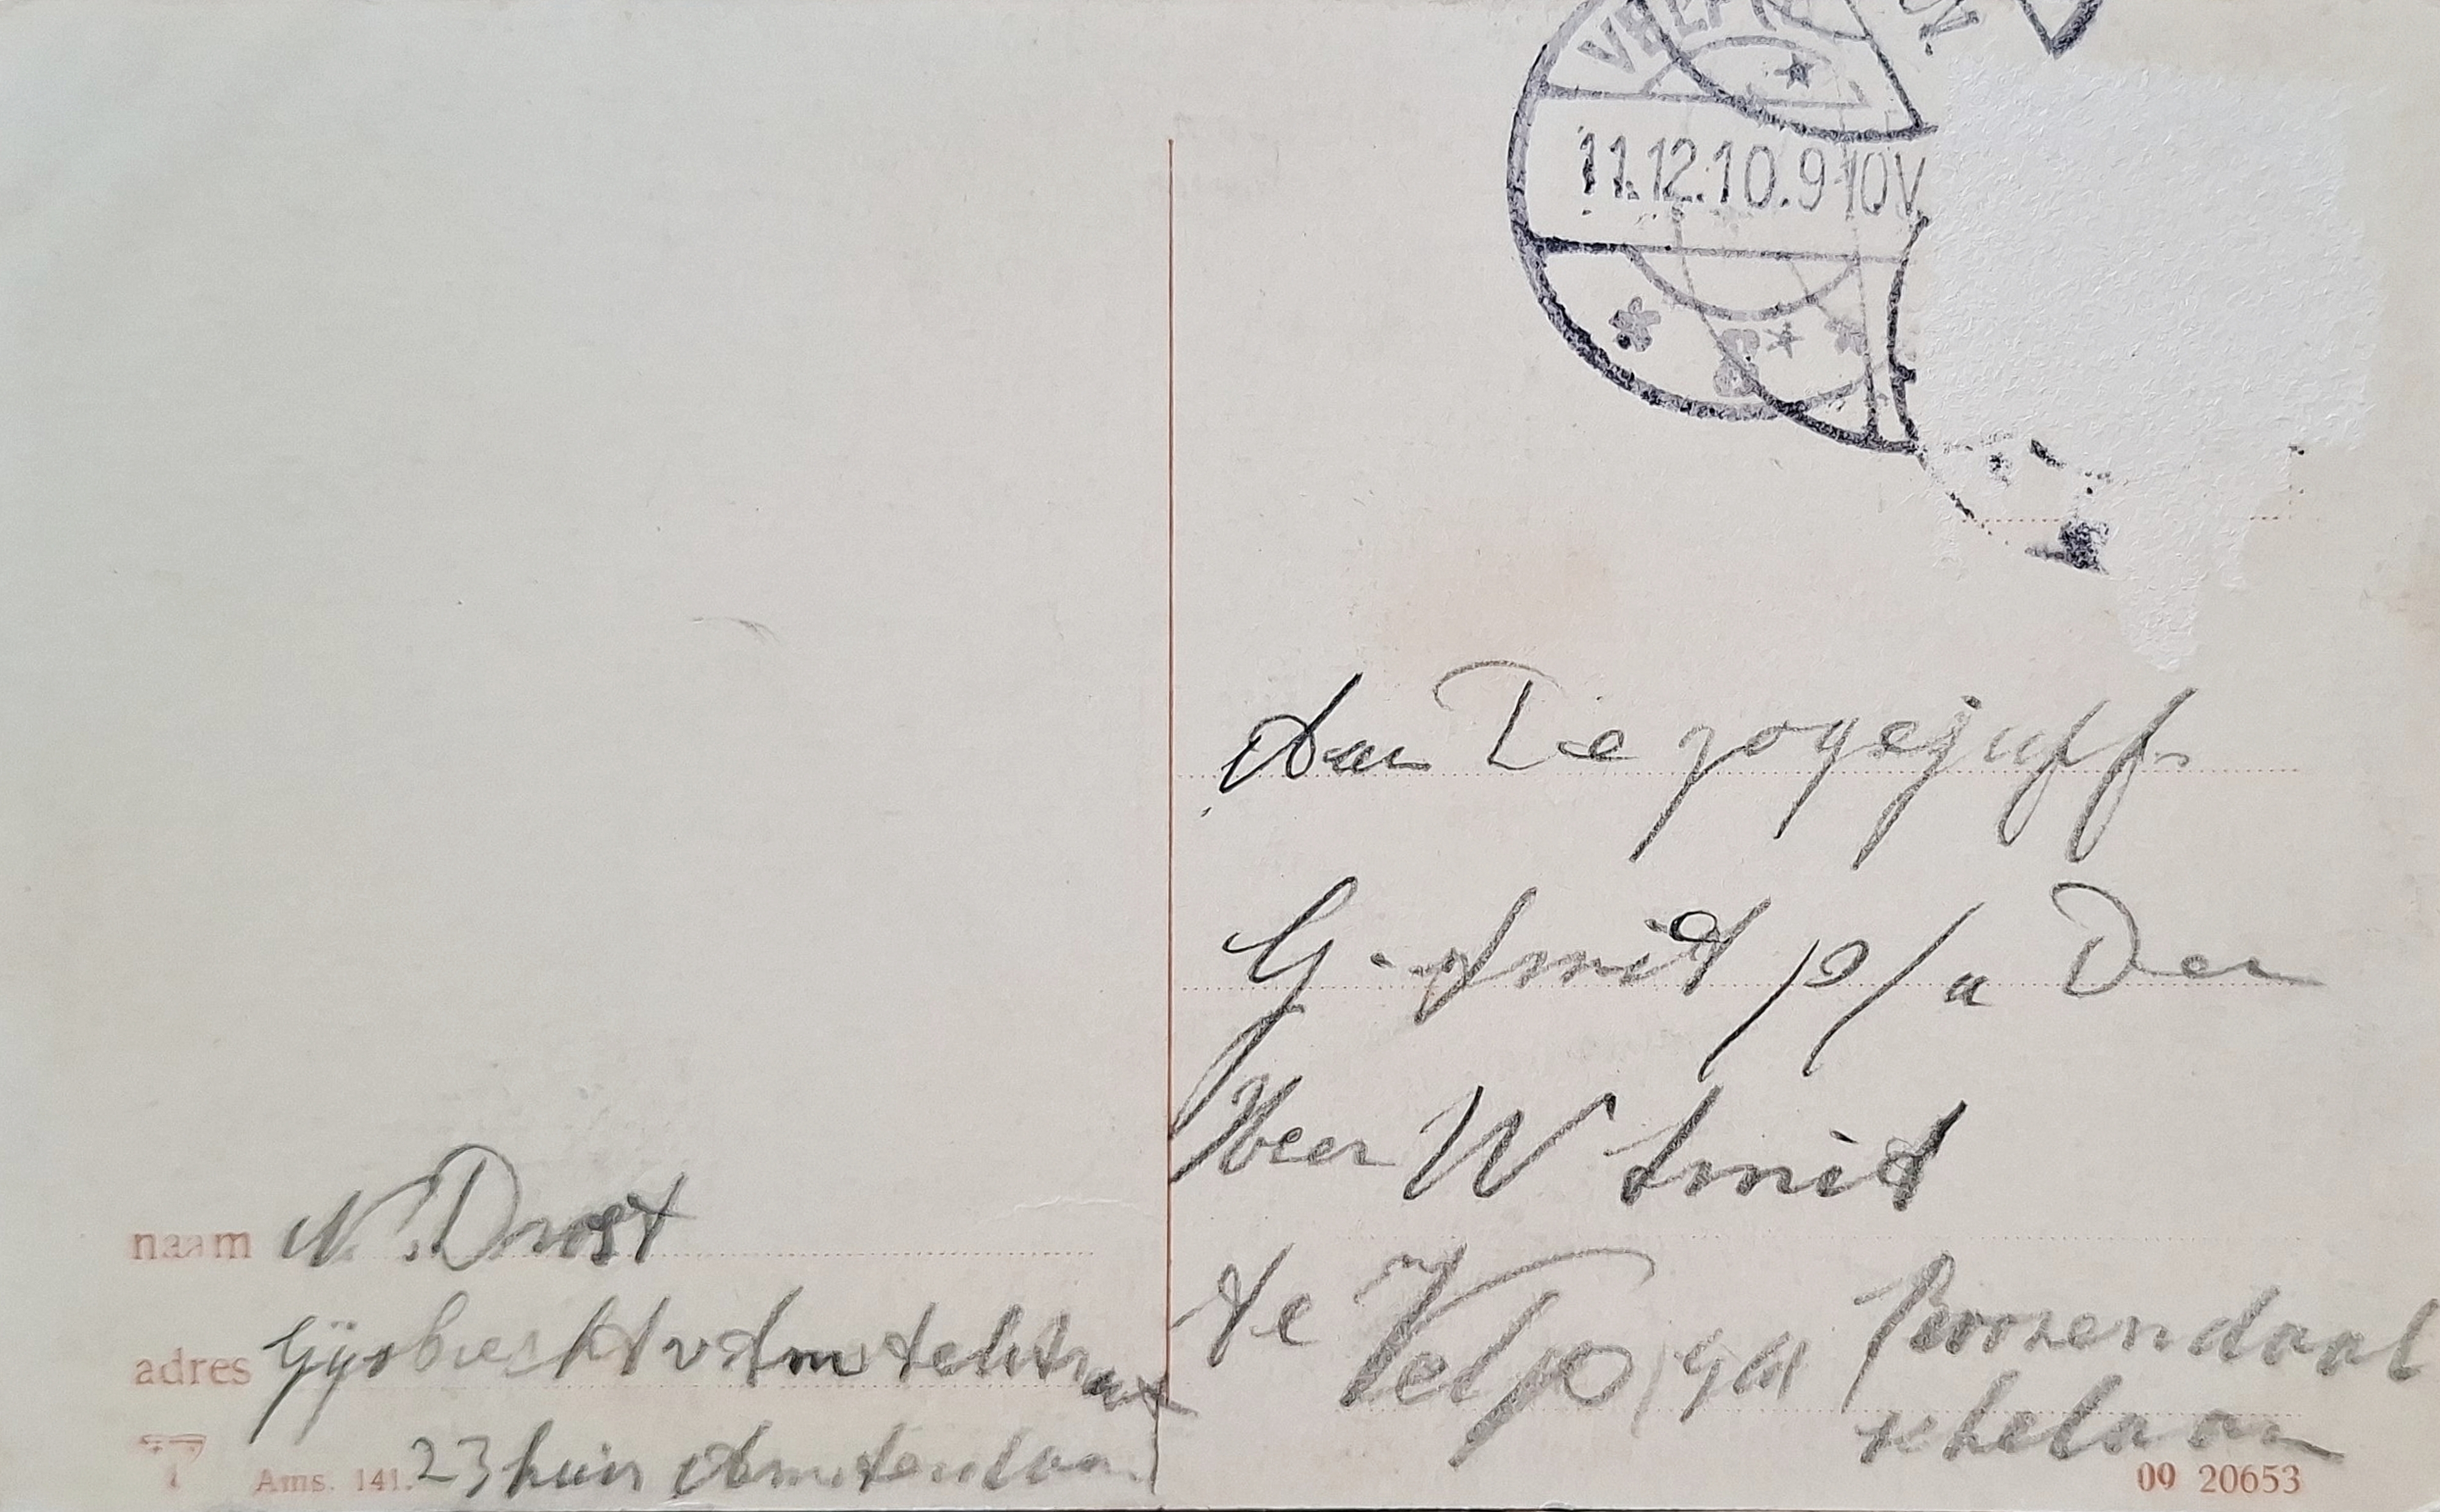 VELP
11.12.10.9-10V
Aan De zogejuff
G. Smid p/a Den
Heer W Smid
te Velp Roozendaal
schelaan
naam N. Drost
adres Gijsbrecht v Amstelstraat
Ams. 141. 23 huis Amsterdam
09 20653